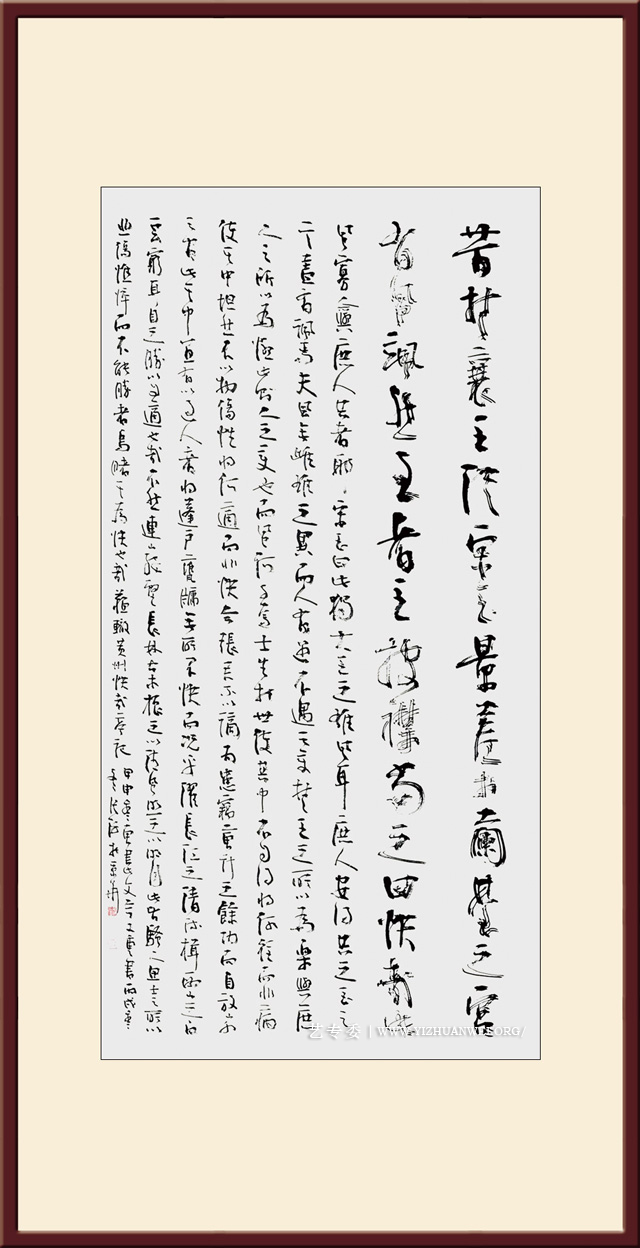 昔楚襄王從宋玉景差於蘭臺之宮
有風颯然至者王披襟當之曰快哉此
風寡人與庶人共者耶宋玉曰此獨大王之雄風耳庶人安得共之玉之
言蓋有諷焉夫風無雌雄之異而人有遇不遇之變楚王之所以為樂與庶
人之所以為憂此則人之變也而風何與焉士生於世使其中不自得將何往而非病
使其中坦然不以物傷性將何適而非快今張君不以謫為患竊會計之餘功而自放山
之間此其中宜有以過人者將蓬戶甕牖無所不快而況乎濯長江之清流揖西山之白
雲窮耳目之勝以自適也哉不然連山絕壑長林古木振之以清風照之以明月此皆騷人思士之所以
悲傷憔悴而不能勝者烏睹其為快也哉蘇轍黃州快哉亭記
艺专委 | WWW.YIZHUANWEI.ORG/